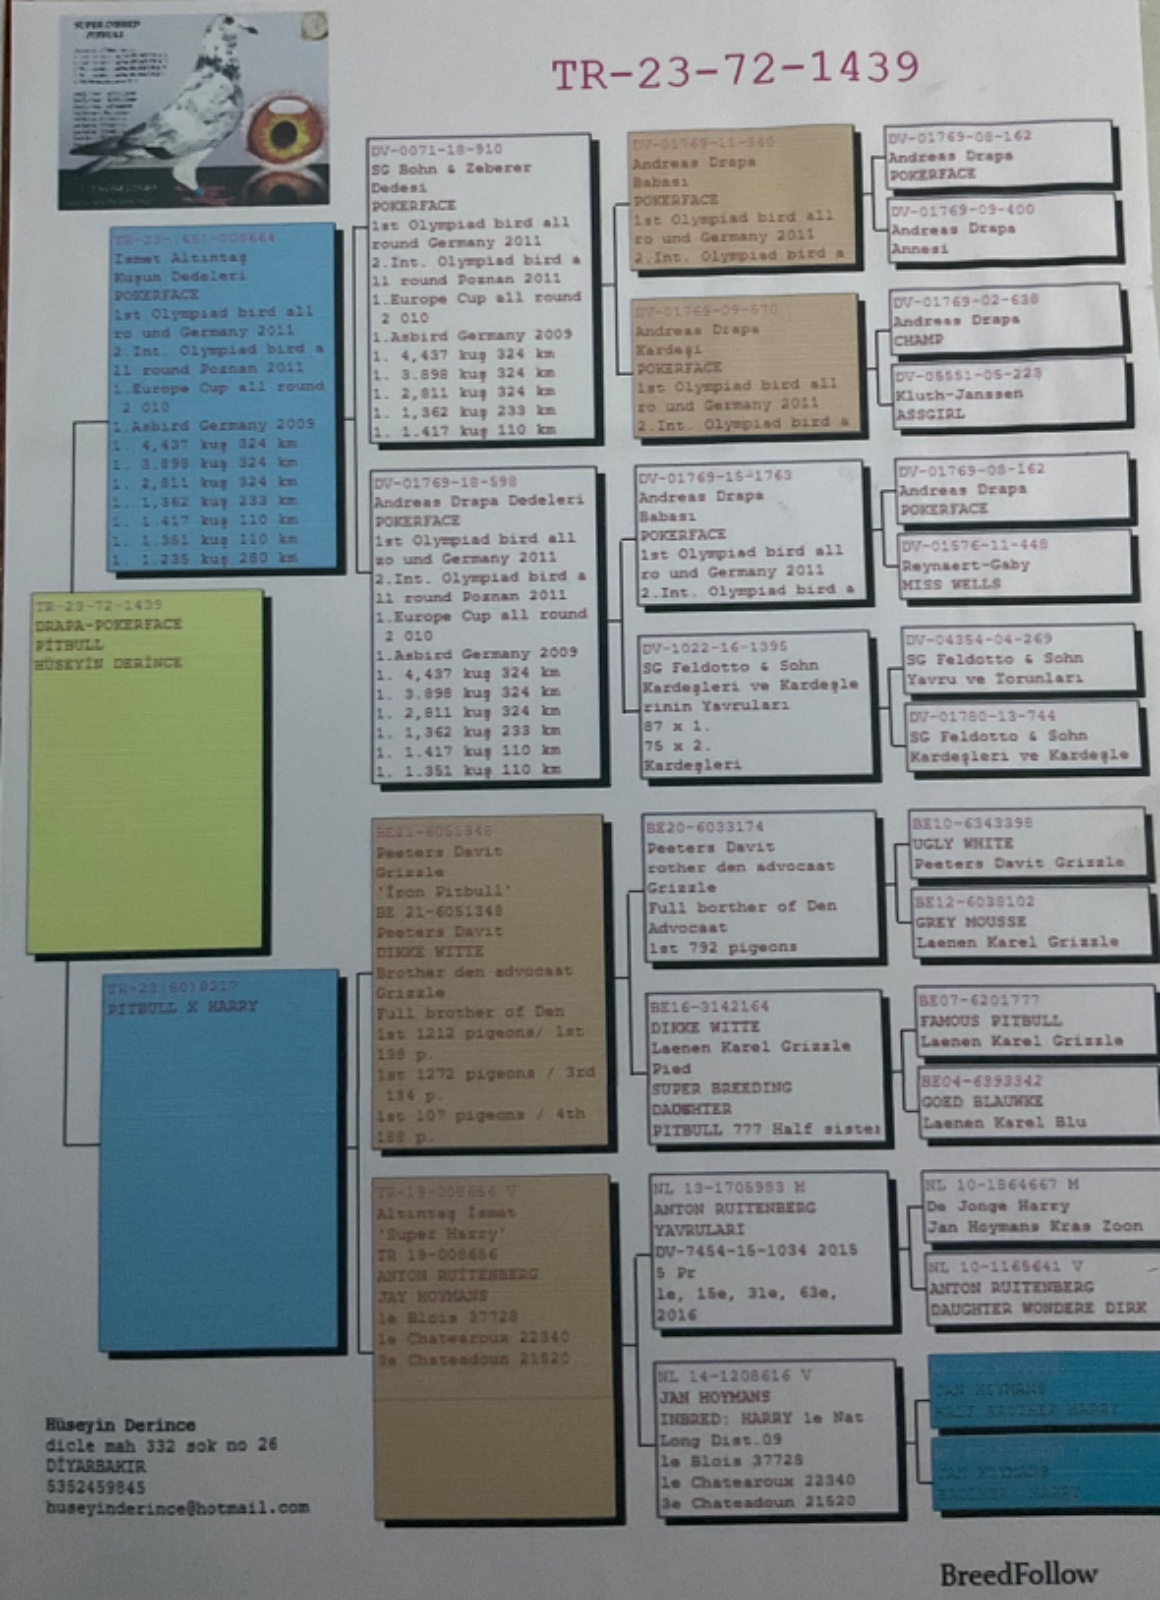 SUPER INBRED
PITBULL
TR-23-72-1439
TR-23-72-1439
DRAPA-POKERFACE
PİTBULL
HÜSEYİN DERİNCE
TR-23-(45)-008664
Ismet Altıntaş
Kuşun Dedeleri
POKERFACE
1st Olympiad bird all
ro und Germany 2011
2.Int. Olympiad bird a
ll round Poznan 2011
1.Europe Cup all round
2 010
1.Asbird Germany 2009
1. 4,437 kuş 324 km
1. 3.898 kuş 324 km
1. 2,811 kuş 324 km
1. 1,362 kuş 233 km
1. 1.417 kuş 110 km
1. 1.351 kuş 110 km
1. 1.235 kuş 280 km
PITBULL X HARRY
DV-0071-18-910
SG Bohn & Zeberer
Dedesi
POKERFACE
1st Olympiad bird all
round Germany 2011
2.Int. Olympiad bird a
ll round Poznan 2011
1.Europe Cup all round
2 010
1.Asbird Germany 2009
1. 4,437 kuş 324 km
1. 3.898 kuş 324 km
1. 2,811 kuş 324 km
1. 1,362 kuş 233 km
1. 1.417 kuş 110 km
DV-01769-18-598
Andreas Drapa Dedeleri
POKERFACE
1st Olympiad bird all
ro und Germany 2011
2.Int. Olympiad bird a
ll round Poznan 2011
1.Europe Cup all round
2 010
1.Asbird Germany 2009
1. 4,437 kuş 324 km
1. 3.898 kuş 324 km
1. 2,811 kuş 324 km
1. 1,362 kuş 233 km
1. 1.417 kuş 110 km
1. 1.351 kuş 110 km
BE21-6051348
Peeters Davit
Grizzle
'İron Pitbull'
BE 21-6051348
Peeters Davit
DIKKE WITTE
Brother den advocaat
Grizzle
Full brother of Den
1st 1212 pigeons/ 1st
138 p.
1st 1272 pigeons / 3rd
184 p.
1st 107 pigeons / 4th
188 p.
TR-19-008656 V
Altıntaş İsmet
'Super Harry'
TR 19-008656
ANTON RUİTENBERG
JAY HOYMANS
1e Blois 37728
1e Chatearoux 22340
3e Chateadoun 21520
DV-01769-11-340
Andreas Drapa
Babası
POKERFACE
1st Olympiad bird all
ro und Germany 2011
2.Int. Olympiad bird a
DV-01769-09-570
Andreas Drapa
Kardeşi
POKERFACE
1st Olympiad bird all
ro und Germany 2011
2.Int. Olympiad bird a
DV-01769-15-1763
Andreas Drapa
Babası
POKERFACE
1st Olympiad bird all
ro und Germany 2011
2.Int. Olympiad bird a
DV-1022-16-1395
SG Feldotto & Sohn
Kardeşleri ve Kardeşle
rinin Yavruları
87 x 1.
75 x 2.
Kardeşleri
BE20-6033174
Peeters Davit
rother den advocaat
Grizzle
Full borther of Den
Advocaat
1st 792 pigeons
BE16-3142164
DIKKE WITTE
Laenen Karel Grizzle
Pied
SUPER BREEDING
DAUGHTER
PITBULL 777 Half sister
NL 13-1705983 M
ANTON RUITENBERG
YAVRULARI
DV-7454-15-1034 2015
5 Pr
1e, 15e, 31e, 63e,
2016
NL 14-1208616 V
JAN HOYMANS
INBRED: HARRY 1e Nat
Long Dist.09
1e Blois 37728
1e Chatearoux 22340
3e Chateadoun 21520
DV-01769-08-162
Andreas Drapa
POKERFACE
DV-01769-09-400
Andreas Drapa
Annesi
DV-01769-02-638
Andreas Drapa
CHAMP
DV-05551-05-223
Kluth-Janssen
ASSGIRL
DV-01769-08-162
Andreas Drapa
POKERFACE
DV-01576-11-448
Reynaert-Gaby
MISS WELLS
DV-04354-04-269
SG Feldotto & Sohn
Yavru ve Torunları
DV-01780-13-744
SG Feldotto & Sohn
Kardeşleri ve Kardeşle
BE10-6343398
UGLY WHITE
Peeters Davit Grizzle
BE12-6038102
GREY MOUSSE
Laenen Karel Grizzle
BE07-6201777
FAMOUS PITBULL
Laenen Karel Grizzle
BE04-6393342
GOED BLAUWKE
Laenen Karel Blu
NL 10-1864667 M
De Jonge Harry
Jan Hoymans Kras Zoon
NL 10-1165641 V
ANTON RUITENBERG
DAUGHTER WONDERE DIRK
JAN HOYMANS
HALF BROTHER HARRY
JAN HOYMANS
BROTHER: HARRY
Hüseyin Derince
dicle mah 332 sok no 26
DİYARBAKIR
5352459845
huseyinderince@hotmail.com
BreedFollow